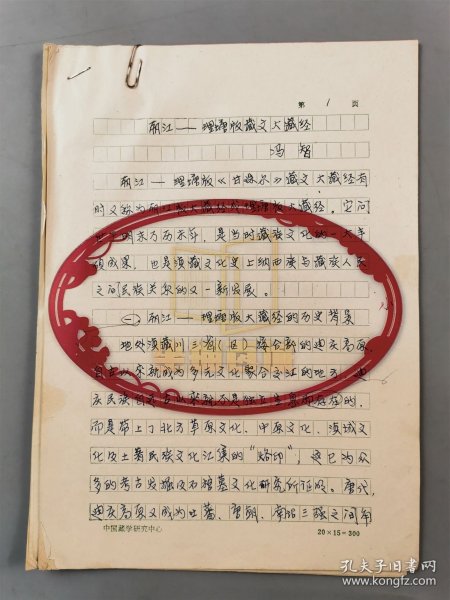 第 1 页
丽江——理塘版藏文大藏经
冯智
丽江——理塘版《甘珠尔》藏文大藏经有
时又称为丽江版大藏经或理塘版大藏经，它问
是当时藏族文化的一大丰
硕成果，也是滇藏文化史上纳西族与藏族人民
之间民族关系的又一新发展。
㈠ 丽江——理塘版大藏经的历史背景
地处滇藏川三省（区）接合部的迪庆高原，
自古以来就成为多元文化聚合交汇的地方，迪
庆民族
而是带上了北方草原文化、中原文化、滇域文
化及土著民族文化汇集的“烙印”，这已为众
多的考古发掘及石棺墓文化研究所证明。唐代，
迪庆高原又成为吐蕃、唐朝、南诏三强之间争
中国藏学研究中心
20×15=300
孔夫子旧书网
www.kongfz.com